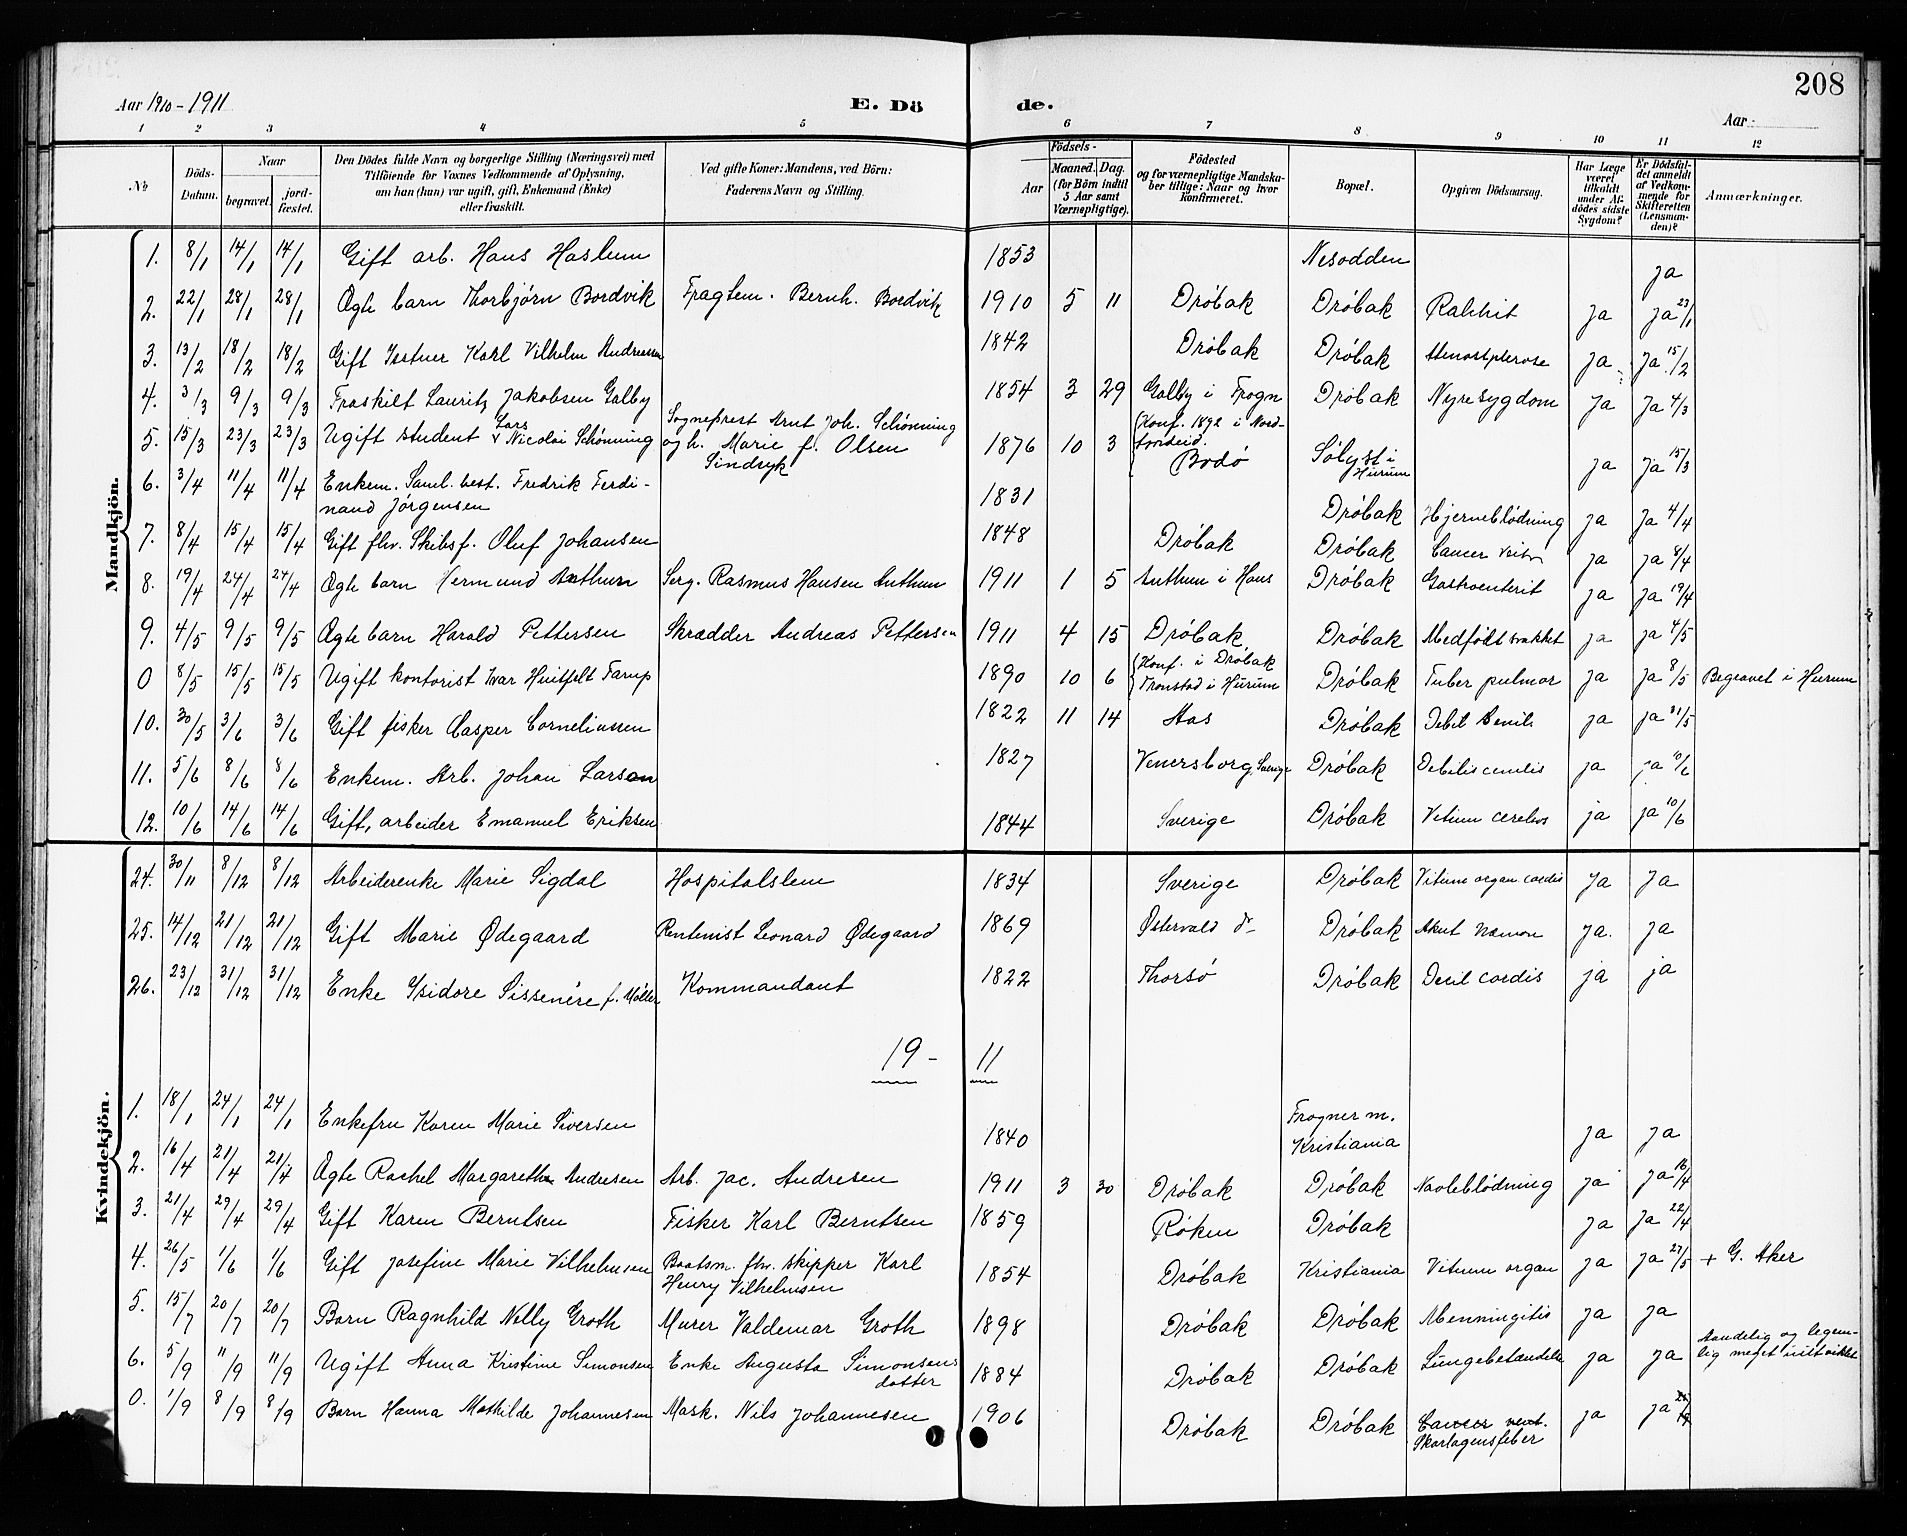 208
Aar 1910 - 1911 E. Dö de. Aar
1 2 3 4 5 6 7 8 9 10 11 12
No
Döds-Datum.
Naar begravet. jordfæstet.
Den Dödes fulde Navn og borgerlige Stilling (Næringsvei) med
Tilföiende for Voxnes Vedkommende af Oplysning,
om han (hun) var ugift, gift, Enkemand (Enke)
eller fraskilt.
Ved gifte Koner: Mandens, ved Börn:
Faderens Navn og Stilling.
Födsels-
Aar Maaned. Dag.
(for Börn indtil 5 Aar samt Værnepligtige).
Födested
og for værnepligtige Mandskaber tillige: Naar og hvor konfirmeret.
Bopæl.
Opgiven Dödsaarsag.
Har Læge været tilkaldt under Afdödes sidste Sygdom?
Er Dödsfaldet anmeldt af Vedkommende for Skifteretten (Lensmanden)?
Anmærkninger.
Mandkjön.
1. 8/1 14/1 14/1 Gift arb. Hans Haslum 1853 Nesodden ja
2. 22/1 28/1 28/1 Ægte barn Thorbjørn Bordvik Fragtem. Bernh. Bordvik 1910 5 11 Drøbak Drøbak Rakhit ja ja 23/1
3. 13/2 18/2 18/2 Gift Karl Vilhelm Andreassen 1842 Drøbak Drøbak ja ja 15/2
4. 3/3 9/3 9/3 Fraskilt Lauritz Jakobsen Galby 1854 3 29 Galby i Frogn Drøbak Nyresygdom ja ja 4/3
5. 15/3 23/3 23/3 Ugift student Lars Nicolai Schønning Sogneprest Arnt Joh. Schønning
og h. Marie f. Olsen
Sindsyk 1876 10 3 Konf. 1892 i Nord-
Bodø Sølyst i Hurum ja ja 15/3
6. 3/4 11/4 11/4 Enkem. Saml. best. Fredrik Ferdi-
nand Jørgensen 1831 Drøbak Hjerneblødning ja ja 4/4
7. 8/4 15/4 15/4 Gift fhv. Skibsf. Oluf Johansen 1848 Drøbak Drøbak Cancer ja ja 8/4
8. 19/4 24/4 24/4 Ægte barn Hermund Anthun Serg. Rasmus Hansen Anthun 1911 1 5 Anthun i Hans Drøbak Gastroenterit ja ja 19/4
9. 4/5 9/5 9/5 Ægte barn Harald Pettersen Skrædder Andreas Pettersen 1911 4 15 Drøbak Drøbak Medfødt svakhet ja ja 4/5
0 8/5 15/5 15/5 Ugift kontorist Ivar Huitfelt Tarup 1890 10 6 Konf. i Drøbak
Tronstad i Hurum Drøbak Tuber pulmor ja ja 8/5 Begravet i Hurum
10. 30/5 3/6 3/6 Gift fisker Casper Corneliussen 1822 11 14 Aas Drøbak Debil senil ja ja 31/5
11. 5/6 8/6 8/6 Enkem. Arb. Johan Larson 1827 Venersborg, Sverige Drøbak Debilis cenilis ja ja 6/6
12. 10/6 14/6 14/6 Gift, arbeider Emanuel Eriksen 1844 Sverige Drøbak Vitium cerebri ja ja 10/6
Kvindekjön.
24. 30/11 8/12 8/12 Arbeiderenke Marie Sigdal Hospitalslem 1834 Sverige Drøbak Vitium organ cordis ja ja
25. 14/12 21/12 21/12 Gift Marie Ødegaard Rentenist Leonard Ødegaard 1869 Østervald Drøbak Akut ja. ja
26. 23/12 31/12 31/12 Enke Isidore Sissenére f. Møller Kommandant 1822 Thorsø Drøbak Devil cordis ja ja
19 - 11
1. 18/1 24/1 24/1 Enkefru Karen Marie Siversen 1840 Frogner m.
Kristiania ja ja
2. 16/4 21/4 21/4 Ægte Rachel Margarethe Andresen Arb. Jac. Andresen 1911 3 30 Drøbak Drøbak Navleblødning ja ja 16/4
3. 21/4 29/4 29/4 Gift Karen Berntsen Fisker Karl Berntsen 1859 Røken Drøbak ja ja 22/4
4. 26/5 1/6 1/6 Gift Josefine Marie Vilhelmsen Baatsm. fhv. skipper Karl
Henry Vilhelmsen 1854 Drøbak Kristiania Vitium organ ja ja 27/5 + G. Aker
5. 15/7 20/7 20/7 Barn Ragnhild Nelly Groth Murer Valdemar Groth 1898 Drøbak Drøbak Menningitis ja ja
6. 5/9 11/9 11/9 Ugift Anna Kristine Simonsen Enke Augusta Simonsens
datter 1884 Drøbak Drøbak Lungebetændelse ja ja Aandelig og legem-
lig meget uutviklet
0. 1/9 8/9 8/9 Barn Hanna Mathilde Johannesen Mask. Nils Johannesen 1906 Drøbak Drøbak Cancer vent.
Skarlagensfeber ja ja